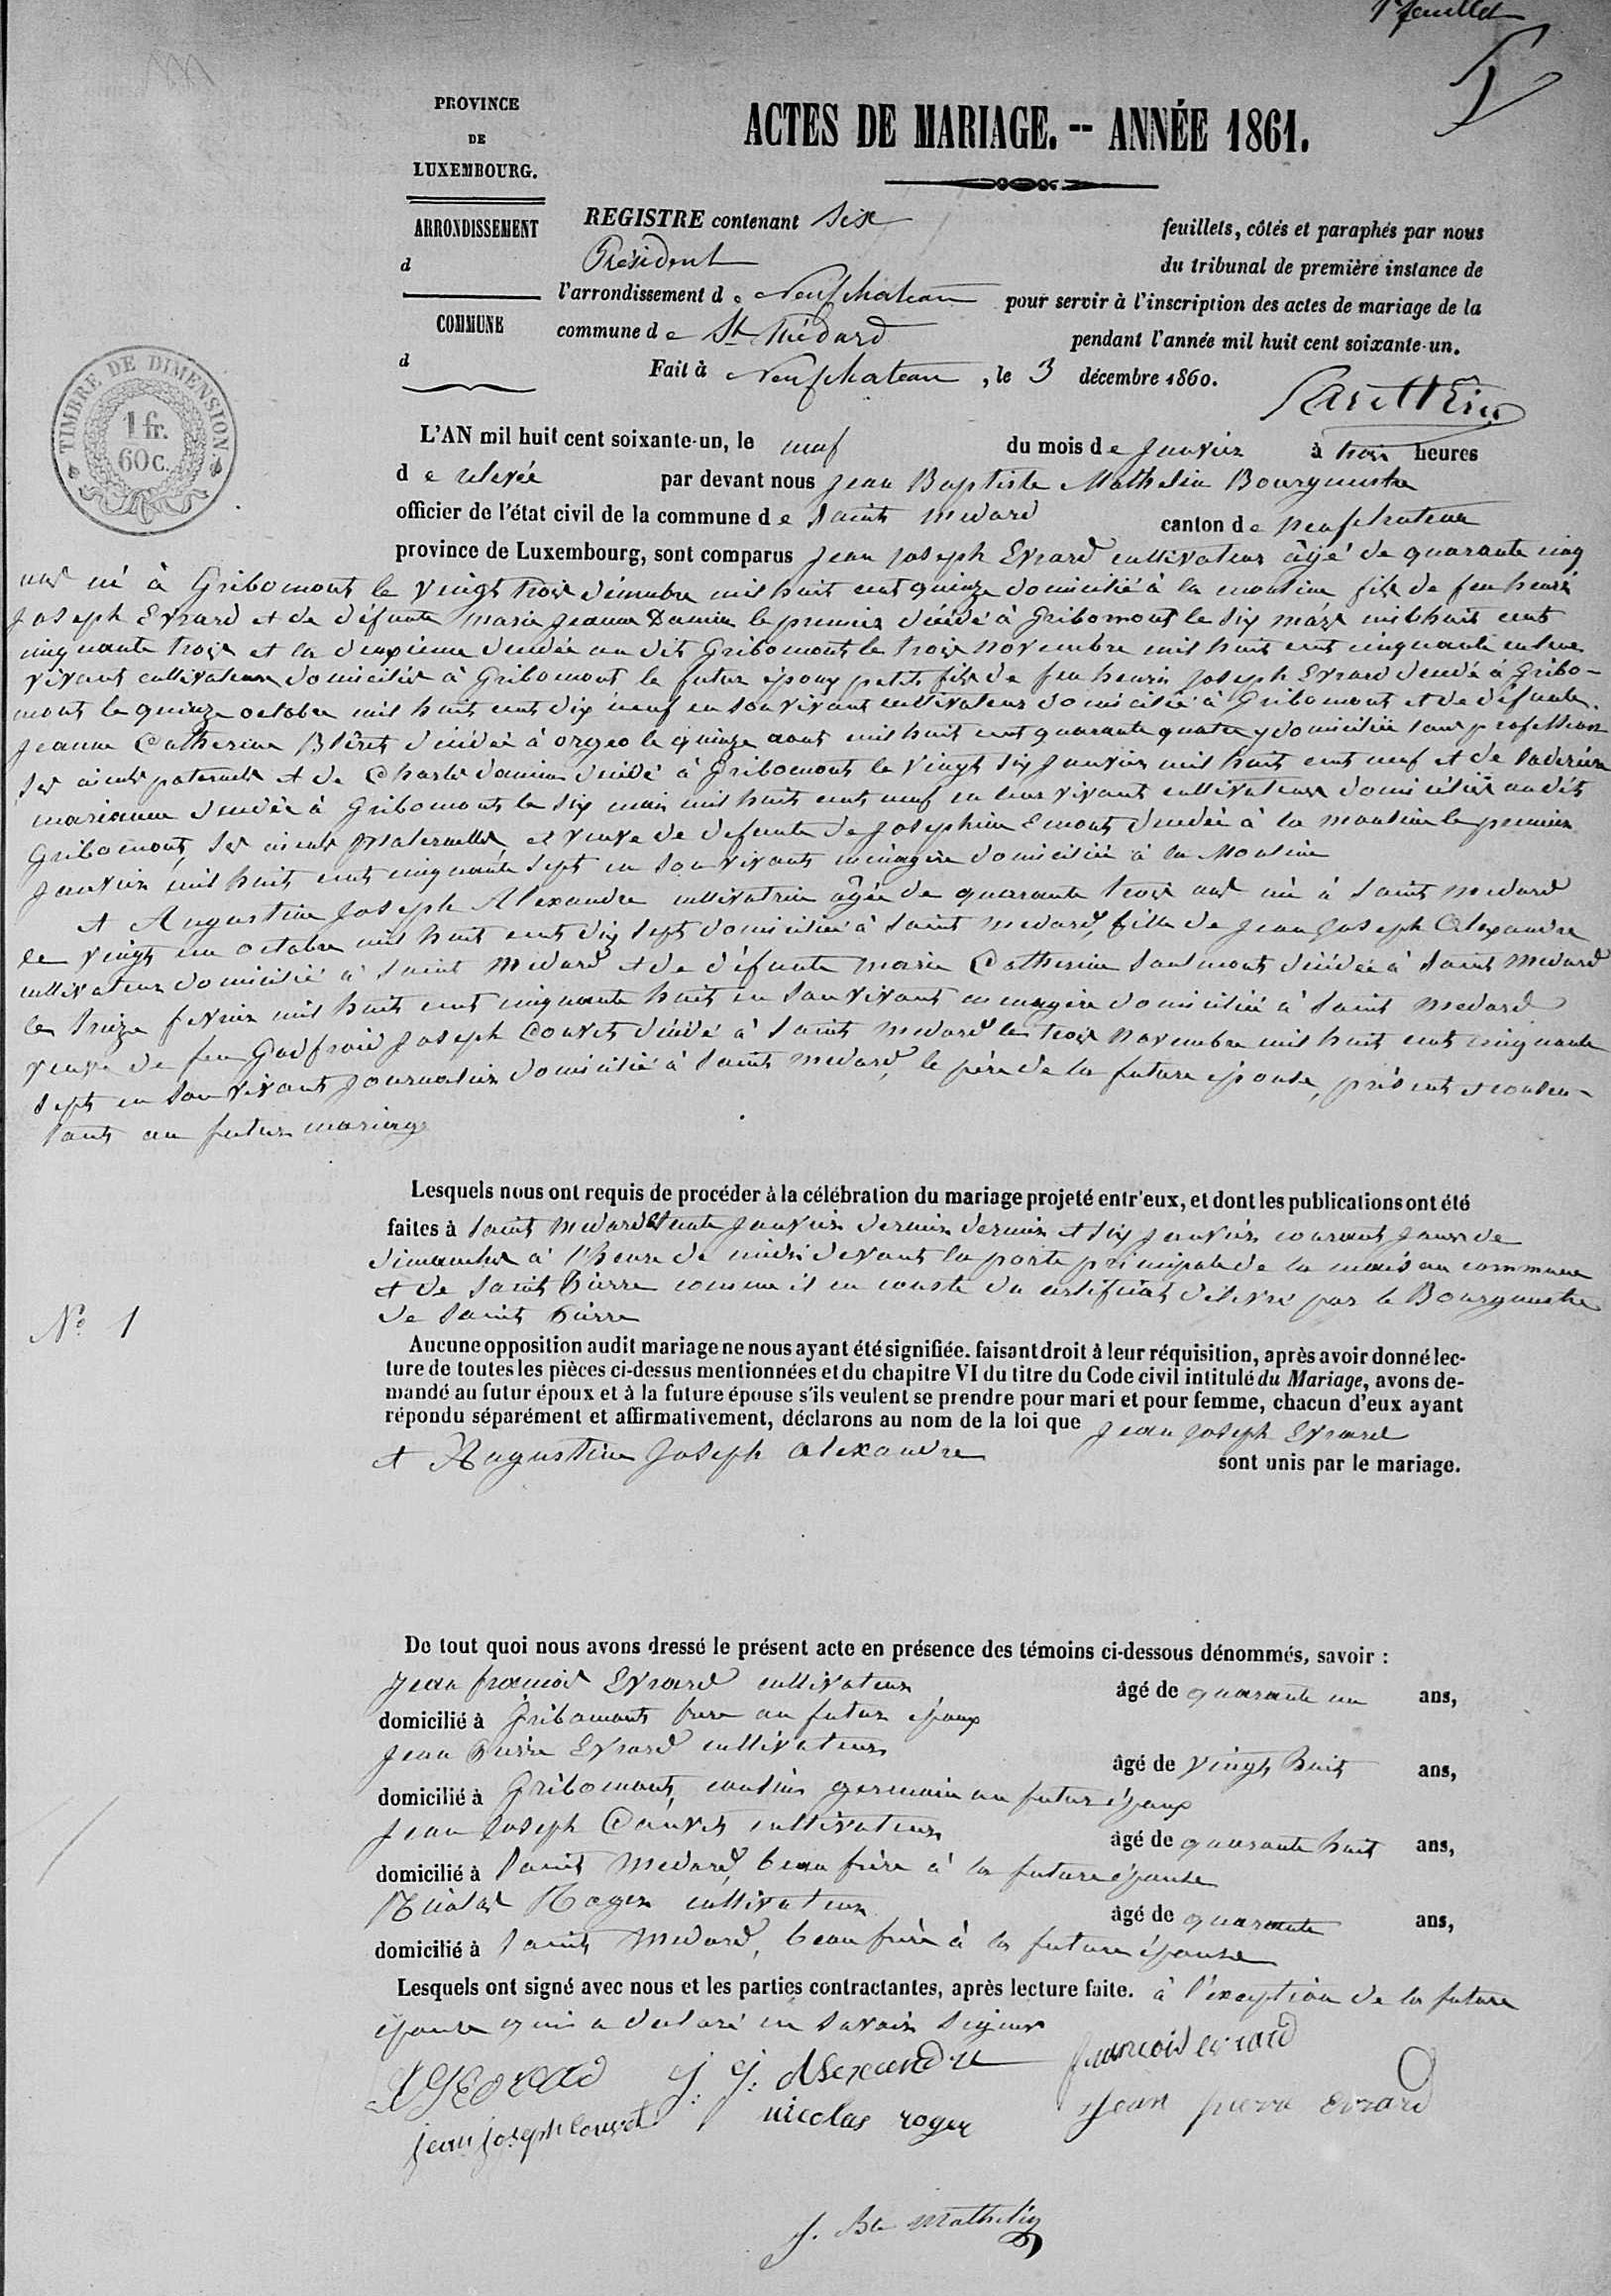 1er feuillet
PROVINCE
DE
LUXEMBOURG.
ACTES DE MARIAGE. -- ANNÉE 1861.
ARRONDISSEMENT
d
COMMUNE
d
REGISTRE contenant Six feuillets, côtés et paraphés par nous
Président du tribunal de première instance de
l'arrondissement de Neufchateau pour servir à l'inscription des actes de mariage de la
commune de St Médard pendant l'année mil huit cent soixante-un.
Fait à Neufchateau, le 3 décembre 1860.
TIMBRE DE DIMENSION.
1 fr.
60 c.
L'AN mil huit cent soixante-un, le neuf du mois de Janvier à trois heures
de relevée par devant nous Jean Baptiste Mathelin Bourgmestre
officier de l'état civil de la commune de Saint Medard canton de neufchateau
province de Luxembourg, sont comparus Jean Joseph Evrard cultivateur âgé de quarante cinq
ans né à Gribomont le vingt trois décembre mil huit cent quinze domicilié à la mouline fils de feu henri
Joseph Evrard et de défunte marie Jeanne Damin le premier décédé à Gribomont le six mars mil huit cent
cinquante trois et la deuxième décédée au dit Gribomont le trois novembre mil huit cent cinquante en leur
vivant cultivateurs domiciliés à Gribomont le futur époux petit fils de feu henri Joseph Evrard décédé à Gribo-
mont le quinze octobre mil huit cent dix neuf en son vivant cultivateur domicilié à Gribomont et de défunte
Jeanne Catherine Blêret décédée à orgeo le quinze aout mil huit cent quarante quatre y domiciliée sans profession
ses aieuls paternels et de Charles damin décédé à Gribomont le vingt six Janvier mil huit cent neuf et de
marianne décédée à Gribomont le six mai mil huit cent neuf en leur vivant cultivateurs domiciliés audit
Gribomont, ses aieuls maternelles et veuve de defunte de Josephine Emont décédée à la mouline le premier
Janvier mil huit cent cinquante sept en son vivant ménagère domiciliée à la Mouline
et Augustine Joseph Alexandre cultivatrice âgée de quarante trois ans née à Saint medard
le vingt un octobre mil huit cent dix sept domiciliée à Saint medard, fille de Jean Joseph Alexandre
cultivateur domicilié à Saint Medard et de défunte marie Catherine Saulmont décédée à Saint Medard
le treize fevrier mil huit cent cinquante huit en son vivant menagère domiciliée à Saint medard
veuve de feu Godfroid Joseph Couvet décédé à Saint medard le trois novembre mil huit cent cinquante
sept en son vivant Journalier domicilié à Saint medard, le père de la future épouse, présent et consen-
tant au futur mariage
Lesquels nous ont requis de procéder à la célébration du mariage projeté entr'eux, et dont les publications ont été
faites à Saint Medard trente Janvier dernier dernier et six Janvier courant Jours de
dimanches à l'heure de midi devant la porte principale de la maison commune
et de Saint Pierre comme il en conste du certificat délivré par le Bourgmestre
de Saint Pierre
N° 1
Aucune opposition audit mariage ne nous ayant été signifiée. faisant droit à leur réquisition, après avoir donné lec-
ture de toutes les pièces ci-dessus mentionnées et du chapitre VI du titre du Code civil intitulé du Mariage, avons de-
mandé au futur époux et à la future épouse s'ils veulent se prendre pour mari et pour femme, chacun d'eux ayant
répondu séparément et affirmativement, déclarons au nom de la loi que Jean Joseph Evrard
et Augustine Joseph alexandre sont unis par le mariage.
De tout quoi nous avons dressé le présent acte en présence des témoins ci-dessous dénommés, savoir :
Jean françois Evrard cultivateur âgé de quarante un ans,
domicilié à Gribomont frere au futur époux
Jean Pierre Evrard cultivateur âgé de vingt huit ans,
domicilié à Gribomont, cousin germain au futur époux
Jean Joseph Couvet cultivateur âgé de quarante huit ans,
domicilié à Saint Medard, beau frère à la future épouse
Nicolas Roger cultivateur âgé de quarante ans,
domicilié à Saint Medard, beau frère à la future épouse
Lesquels ont signé avec nous et les parties contractantes, après lecture faite. à l'exception de la future
épouse qui a declaré ne savoir signer
J J Evrard J. J. Alexandre francois evrard
jean joseph couvet nicolas roger Jean pierre evrard
J. Bte Mathelin